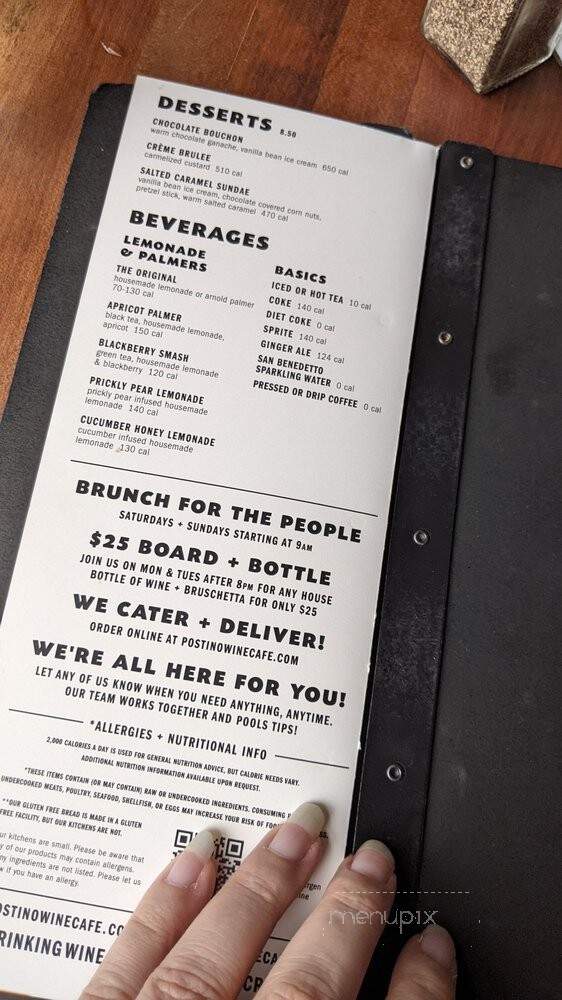 DESSERTS 8.50
CHOCOLATE BOUCHON
warm chocolate ganache, vanilla bean ice cream 650 cal
CRÈME BRULEE
carmelized custard 510 cal
SALTED CARAMEL SUNDAE
vanilla bean ice cream, chocolate covered corn nuts,
pretzel stick, warm salted caramel 470 cal
BEVERAGES
LEMONADE
& PALMERS
THE ORIGINAL
housemade lemonade or arnold palmer
70-130 cal
APRICOT PALMER
black tea, housemade lemonade,
apricot 150 cal
BLACKBERRY SMASH
green tea, housemade lemonade
& blackberry 120 cal
PRICKLY PEAR LEMONADE
prickly pear infused housemade
lemonade 140 cal
CUCUMBER HONEY LEMONADE
cucumber infused housemade
lemonade 130 cal
BASICS
ICED OR HOT TEA 10 cal
COKE 140 cal
DIET COKE 0 cal
SPRITE 140 cal
GINGER ALE 124 cal
SAN BENEDETTO
SPARKLING WATER 0 cal
PRESSED OR DRIP COFFEE 0 cal
BRUNCH FOR THE PEOPLE
SATURDAYS + SUNDAYS STARTING AT 9AM
$25 BOARD + BOTTLE
JOIN US ON MON & TUES AFTER 8PM FOR ANY HOUSE
BOTTLE OF WINE + BRUSCHETTA FOR ONLY $25
WE CATER + DELIVER!
ORDER ONLINE AT POSTINOWINECAFE.COM
WE'RE ALL HERE FOR YOU!
LET ANY OF US KNOW WHEN YOU NEED ANYTHING, ANYTIME.
OUR TEAM WORKS TOGETHER AND POOLS TIPS!
*ALLERGIES + NUTRITIONAL INFO
2,000 CALORIES A DAY IS USED FOR GENERAL NUTRITION ADVICE, BUT CALORIE NEEDS VARY.
ADDITIONAL NUTRITION INFORMATION AVAILABLE UPON REQUEST.
*THESE ITEMS CONTAIN (OR MAY CONTAIN) RAW OR UNDERCOOKED INGREDIENTS. CONSUMING
UNDERCOOKED MEATS, POULTRY, SEAFOOD, SHELLFISH, OR EGGS MAY INCREASE YOUR RISK OF
**OUR GLUTEN FREE BREAD IS MADE IN A GLUTEN
FREE FACILITY, BUT OUR KITCHENS ARE NOT.
ur kitchens are small. Please be aware that
y of our products may contain allergens.
ny ingredients are not listed. Please let us
w if you have an allergy.
OSTINOWINECAFE.CO
RINKINGWINE
menupix